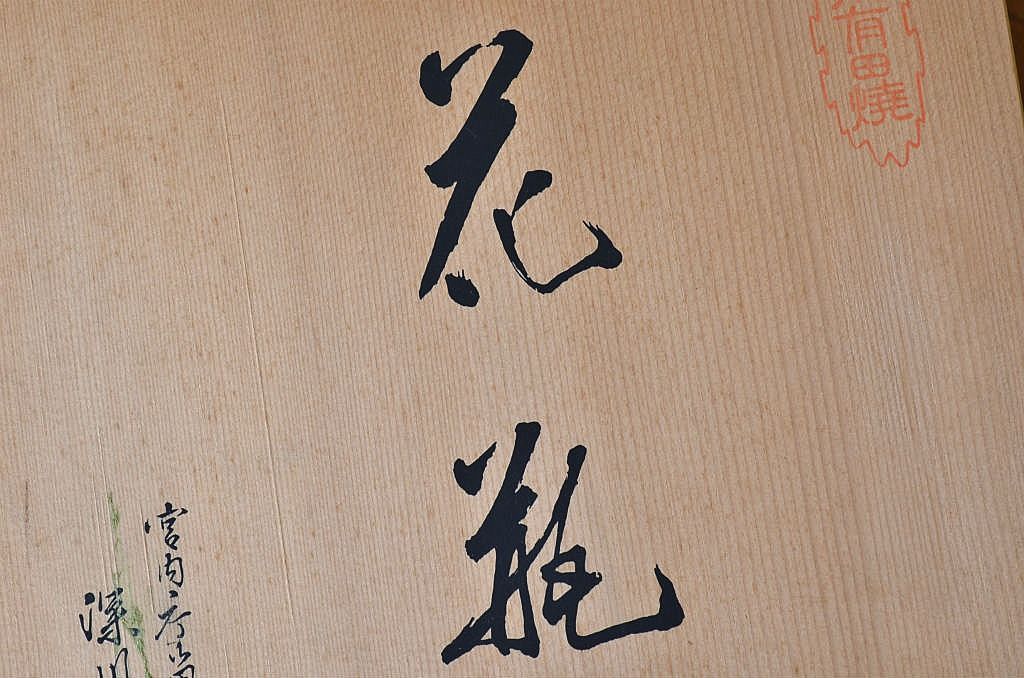 有田焼
花瓶
宮内庁
深川